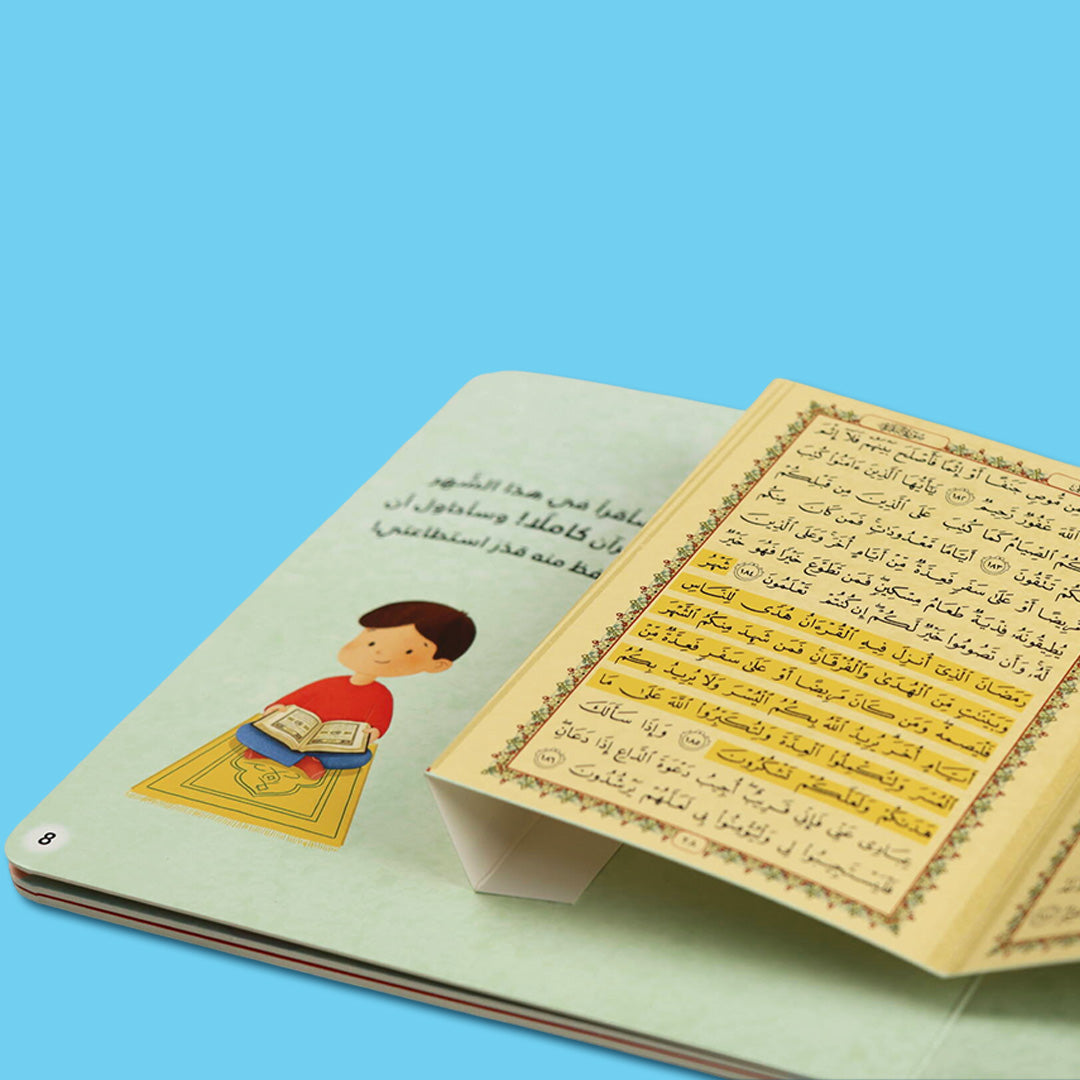 في هذا الشهر
كاملًا! وسأحاول أن
منه قدر استطاعتي!
8
سُورَةُ البَقَرَةِ
مِن مُّوصٍ جَنَفًا أَوْ إِثْمًا فَأَصْلَحَ بَيْنَهُمْ فَلَآ إِثْمَ
ٱللَّهَ غَفُورٌ رَّحِيمٌ ١٨٢ يَٰٓأَيُّهَا ٱلَّذِينَ ءَامَنُوا۟ كُتِبَ
ٱلصِّيَامُ كَمَا كُتِبَ عَلَى ٱلَّذِينَ مِن قَبْلِكُمْ
تَتَّقُونَ ١٨٣ أَيَّامًا مَّعْدُودَٰتٍ فَمَن كَانَ مِنكُم
مَّرِيضًا أَوْ عَلَىٰ سَفَرٍ فَعِدَّةٌ مِّنْ أَيَّامٍ أُخَرَ وَعَلَى ٱلَّذِينَ
يُطِيقُونَهُۥ فِدْيَةٌ طَعَامُ مِسْكِينٍ فَمَن تَطَوَّعَ خَيْرًا فَهُوَ خَيْرٌ
لَّهُۥ وَأَن تَصُومُوا۟ خَيْرٌ لَّكُمْ إِن كُنتُمْ تَعْلَمُونَ ١٨٤ شَهْرُ
رَمَضَانَ ٱلَّذِىٓ أُنزِلَ فِيهِ ٱلْقُرْءَانُ هُدًى لِّلنَّاسِ
وَبَيِّنَٰتٍ مِّنَ ٱلْهُدَىٰ وَٱلْفُرْقَانِ فَمَن شَهِدَ مِنكُمُ ٱلشَّهْرَ
فَلْيَصُمْهُ وَمَن كَانَ مَرِيضًا أَوْ عَلَىٰ سَفَرٍ فَعِدَّةٌ مِّنْ
أَيَّامٍ أُخَرَ يُرِيدُ ٱللَّهُ بِكُمُ ٱلْيُسْرَ وَلَا يُرِيدُ بِكُمُ
ٱلْعُسْرَ وَلِتُكْمِلُوا۟ ٱلْعِدَّةَ وَلِتُكَبِّرُوا۟ ٱللَّهَ عَلَىٰ مَا
هَدَىٰكُمْ وَلَعَلَّكُمْ تَشْكُرُونَ ١٨٥ وَإِذَا سَأَلَكَ
عِبَادِى عَنِّى فَإِنِّى قَرِيبٌ أُجِيبُ دَعْوَةَ ٱلدَّاعِ إِذَا دَعَانِ
فَلْيَسْتَجِيبُوا۟ لِى وَلْيُؤْمِنُوا۟ بِى لَعَلَّهُمْ يَرْشُدُونَ ١٨٦
٢٨